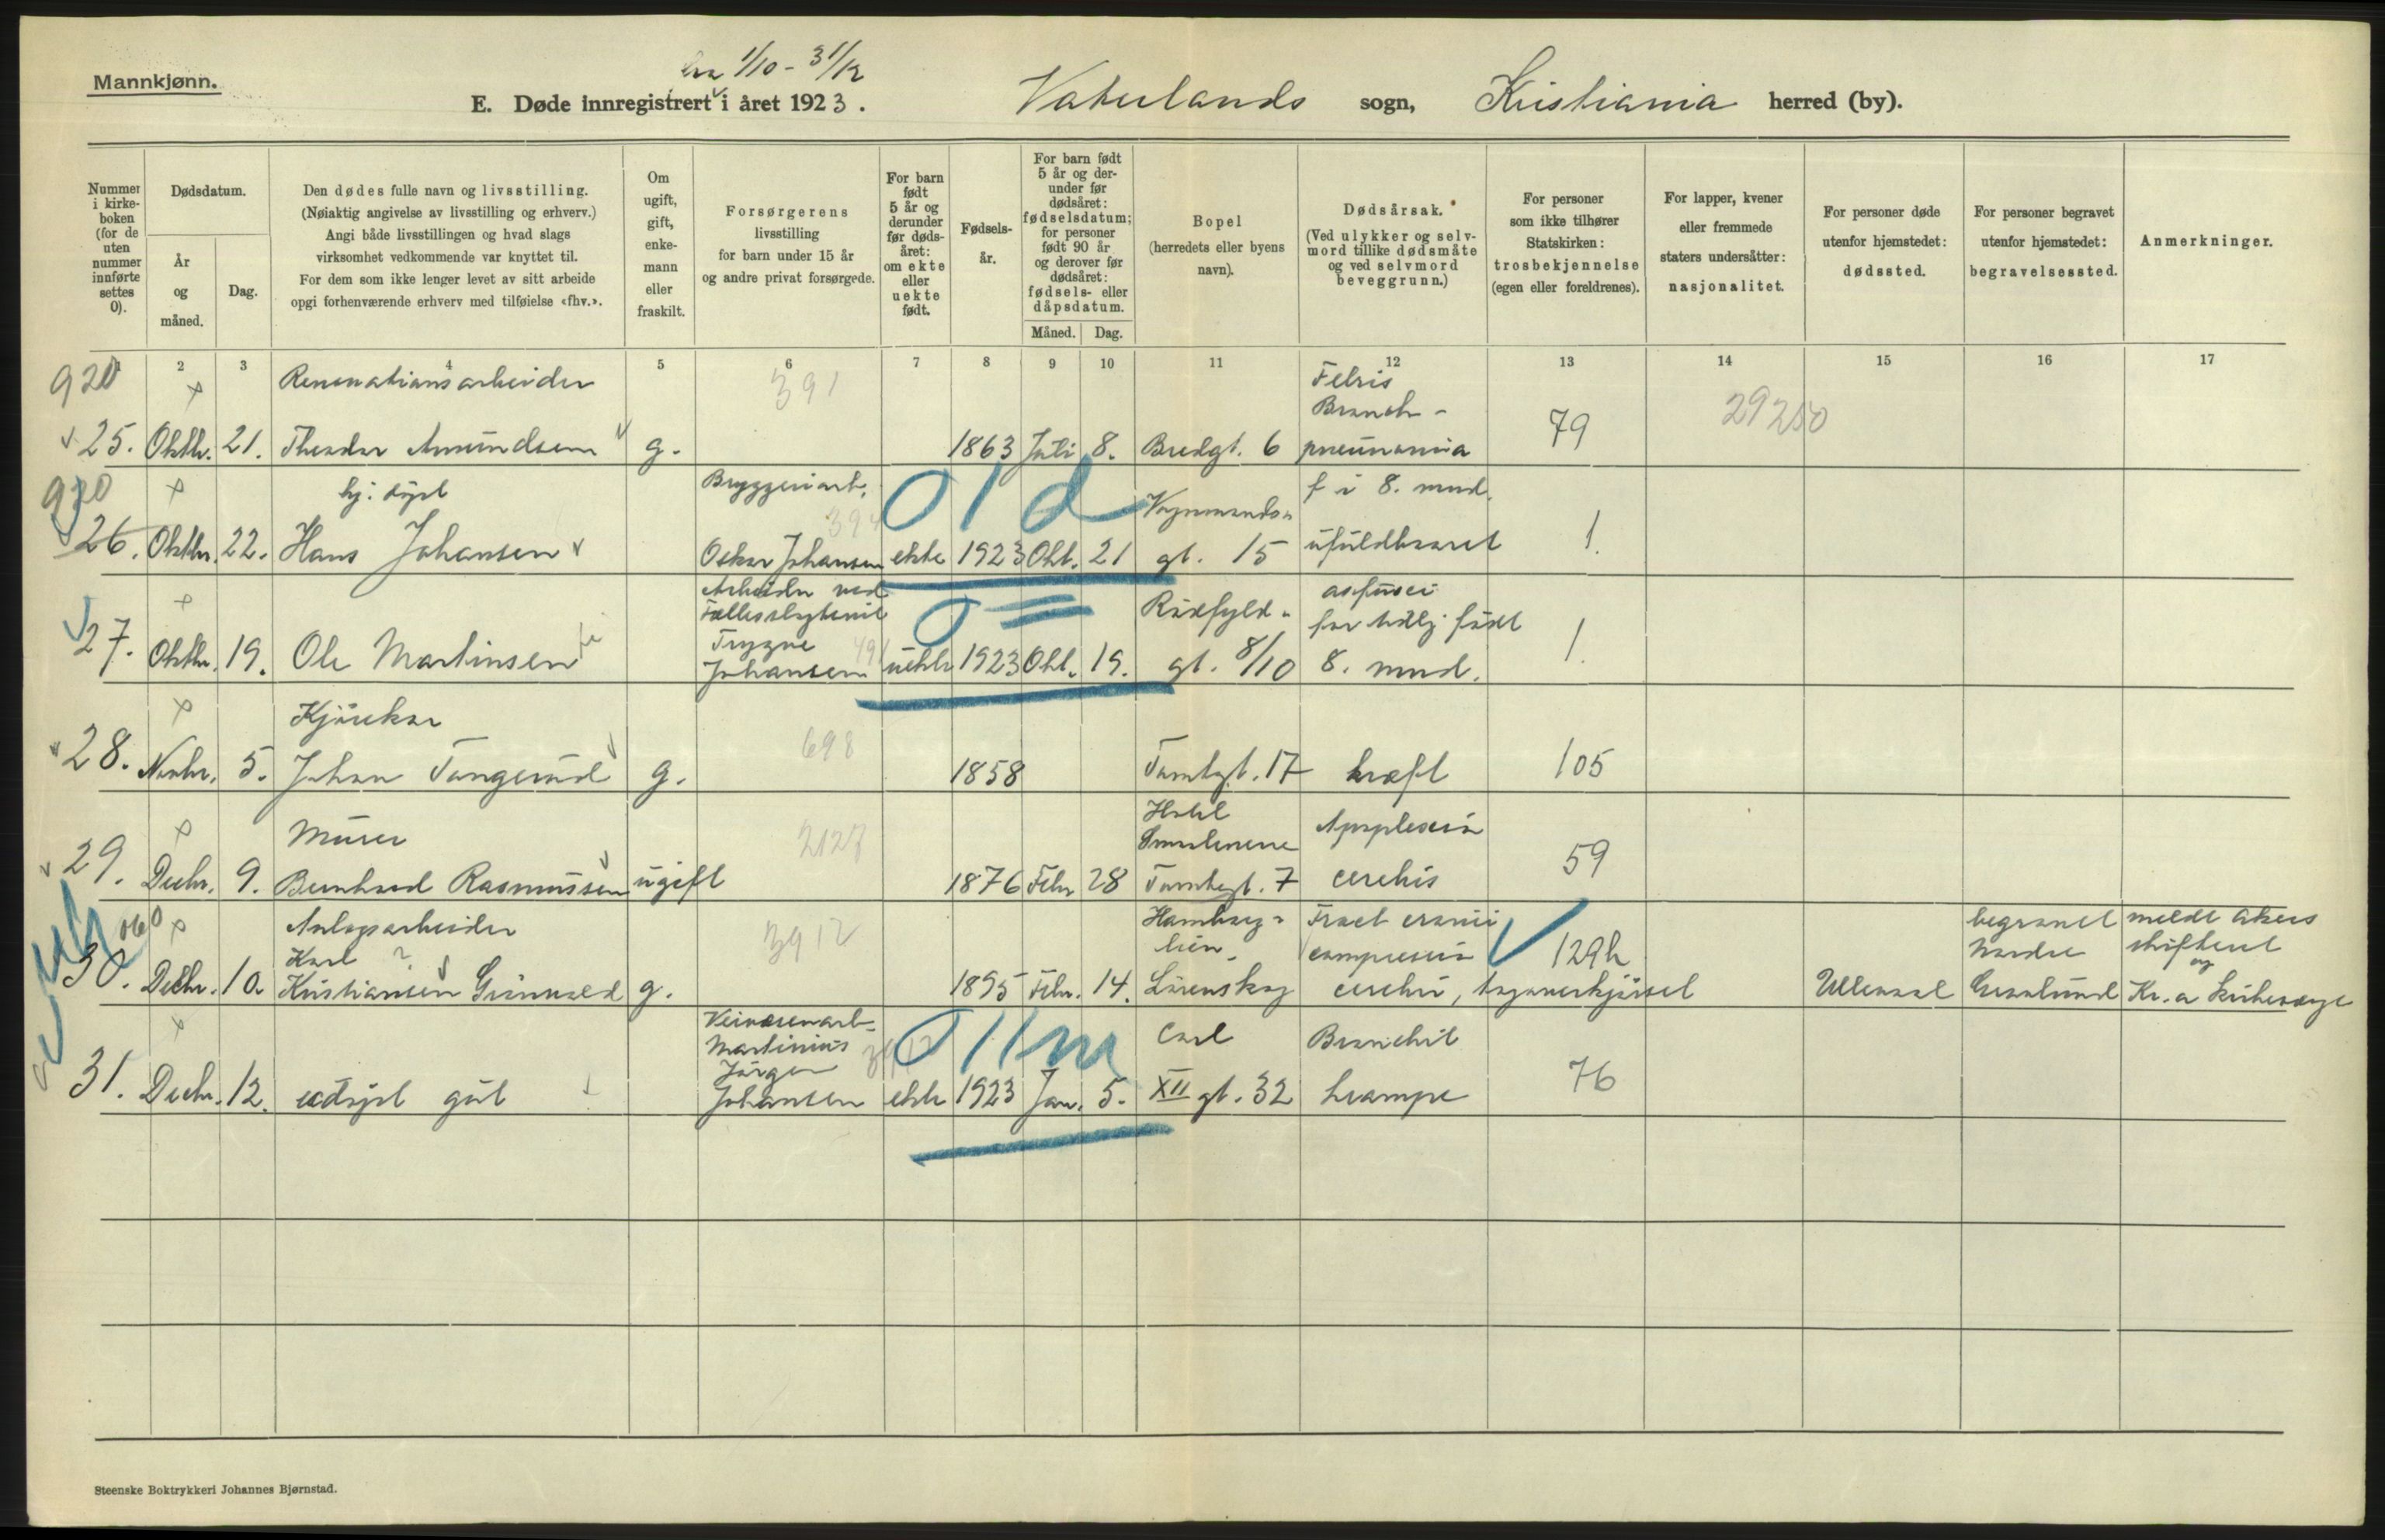 Mannkjønn.
fra 1/10 - 31/12
E. Døde innregistrert i året 1923. Vaterlands sogn, Kristiania herred (by).
Nummer i kirkeboken (for de uten nummer innførte settes 0).
Dødsdatum.
År og måned.
Dag.
Den dødes fulle navn og livsstilling.
(Nøiaktig angivelse av livsstilling og erhverv.)
Angi både livsstillingen og hvad slags
virksomhet vedkommende var knyttet til.
For dem som ikke lenger levet av sitt arbeide
opgi forhenværende erhverv med tilføielse «fhv.».
Om ugift, gift, enkemann eller fraskilt.
Forsørgerens
livsstilling
for barn under 15 år
og andre privat forsørgede.
For barn født 5 år og derunder før dødsåret: om ekte eller uekte født.
Fødselsår.
For barn født 5 år og derunder før dødsåret: fødselsdatum; for personer født 90 år og derover før dødsåret: fødsels- eller dåpsdatum.
Måned. Dag.
Bopel
(herredets eller byens
navn).
Dødsårsak.
(Ved ulykker og selvmord tillike dødsmåte og ved selvmord beveggrunn.)
For personer
som ikke tilhører
Statskirken:
trosbekjennelse
(egen eller foreldrenes).
For lapper, kvener
eller fremmede
staters undersåtter:
nasjonalitet.
For personer døde
utenfor hjemstedet:
dødssted.
For personer begravet
utenfor hjemstedet:
begravelsessted.
Anmerkninger.
1 2 3 4 5 6 7 8 9 10 11 12 13 14 15 16 17
920 × Renovationsarbeider 391 Febris
Bronch-
25. Oktbr. 21. Theodor Amundsen g. 1863 Juli 8. Bredgt. 6 pneumonia 79 29250
920 × hj. døpt Bryggeriarb. 01d Vognmands- f i 8. mnd.
26. Oktbr. 22. Hans Johansen Oskar Johansen ekte 1923 Okt. 21 gt. 15 ufuldbaaret 1.
× Arbeider ved
Fællesslagteriet
Trygve
0= Rödfyld-
for tidlig födt
27. Oktbr. 19. Ole Martinsen Johansen uekte 1923 Okt. 19. gt. 8/10 8. mnd. 1.
× Kjörekar 698
28. Novbr. 5. Johan Tangerud g. 1858 Tomtegt. 17 kræft 105
× Murer 2127 Hotel
Smaalenene Apoplexia
29. Decbr. 9. Bernhard Rasmussen ugift 1876 Febr 28 Tomtegt. 7 cerebri 59
060 × Anlegsarbeider 3912 Hamborg-
lien. Fract cranii
Karl ? compressio 129h begravet meldt Akers
Nordre skifteret
og
30. Decbr. 10. Kristiansen Grönvold g. 1895 Febr. 14. Lörenskog cerebri, togoverkjörsel Ullevaal Gravlund Kr.a kirkeverge
× Veivæsenarb.
Martinius
Jörgen
011m Carl Bronchit
31. Decbr. 12. udöpt gut Johansen ekte 1923 Jan. 5. XII gt. 32 krampe 76
Steenske Boktrykkeri Johannes Bjørnstad.